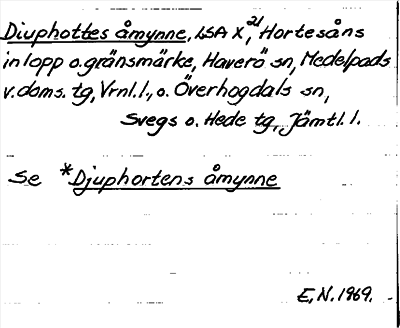 Diuphottes åmynne, LSA X, 21 Hortesåns
inlopp o. gränsmärke, Haverö sn, Medelpads
v. doms. tg, Vrnl. l., o. Överhogdals sn,
Svegs o. Hede tg, Jämtl. l.
Se *Djuphortens åmynne
E, N. 1969.